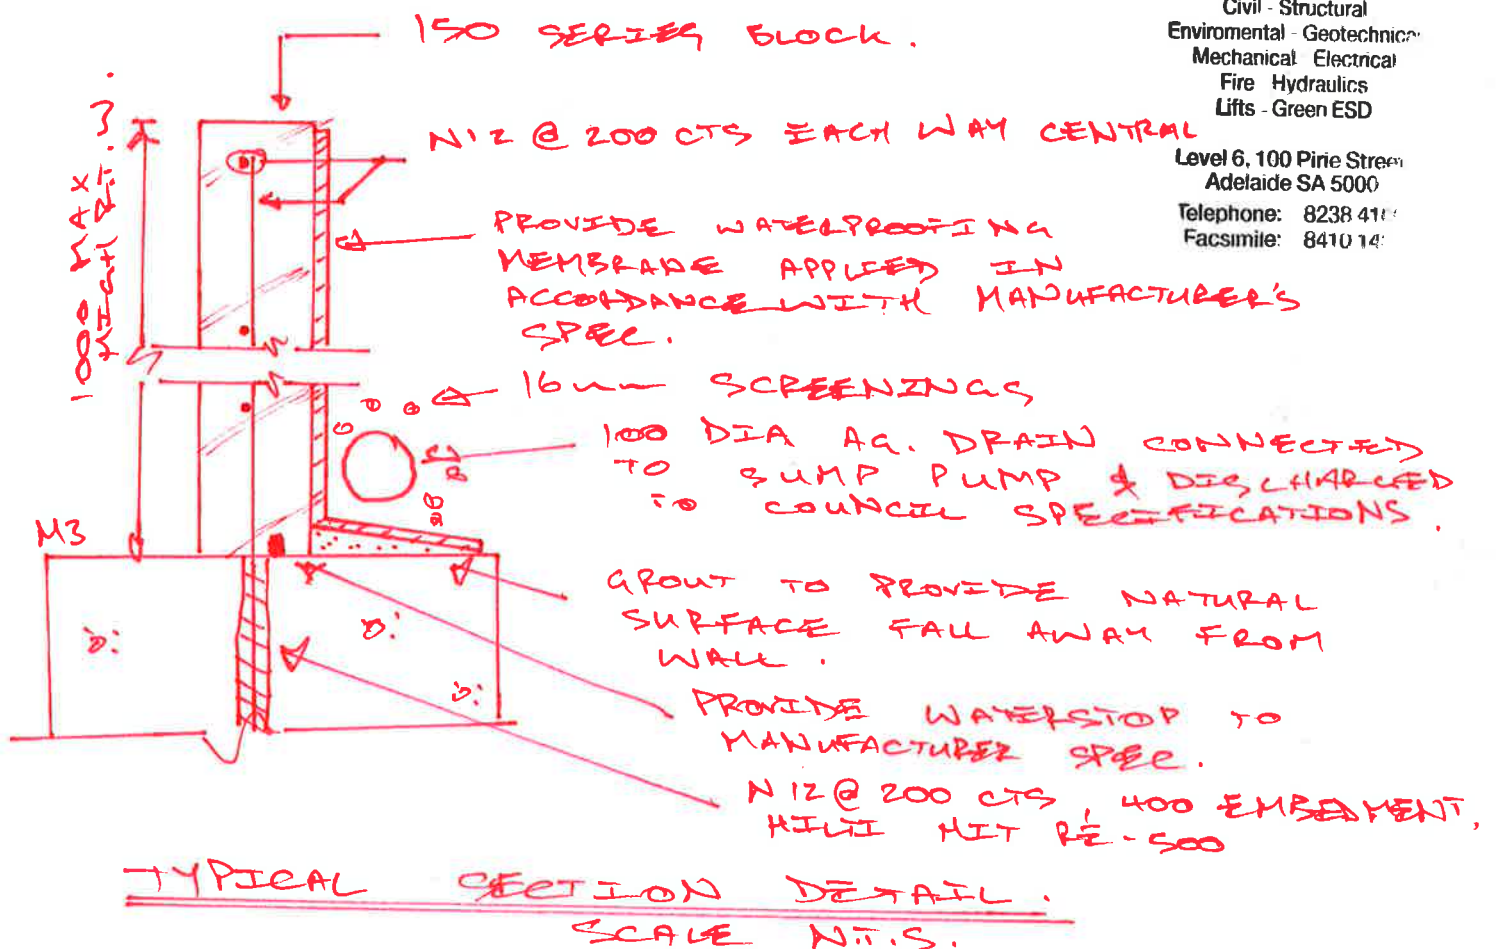 Civil - Structural
Enviromental - Geotechnical
Mechanical Electrical
Fire Hydraulics
Lifts - Green ESD
Level 6, 100 Pirie Street
Adelaide SA 5000
Telephone: 8238 41
Facsimile: 8410 14
150 SERIES BLOCK.
1000 MAX
N12 @ 200 CTS EACH WAY CENTRAL
PROVIDE WATERPROOFING
MEMBRANE APPLIED IN
ACCORDANCE WITH MANUFACTURER'S
SPEC.
16mm SCREENINGS
100 DIA AG. DRAIN CONNECTED
TO SUMP PUMP & DISCHARGED
TO COUNCIL SPECIFICATIONS.
M3
GROUT TO PROVIDE NATURAL
SURFACE FALL AWAY FROM
WALL.
PROVIDE WATERSTOP TO
MANUFACTURER SPEC.
N12 @ 200 CTS, 400 EMBEDMENT,
HILTI HIT RE-500
TYPICAL SECTION DETAIL.
SCALE N.T.S.